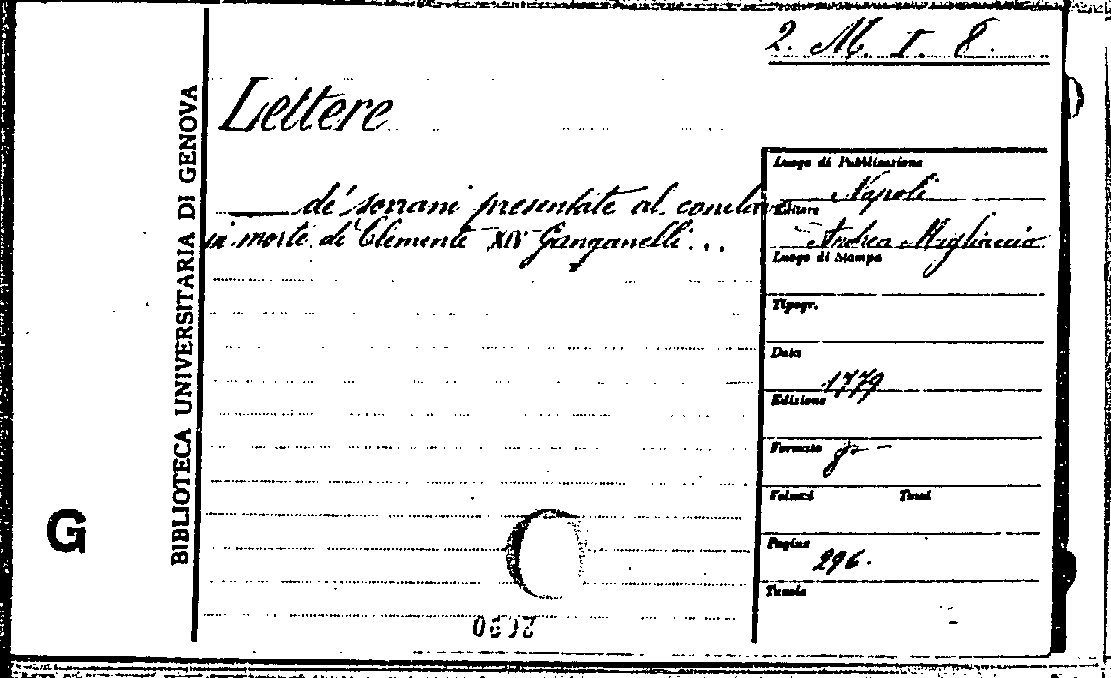 2. M. I. 8.
Lettere
de' sovrani presentate al conclave
in morte di Clemente XIV Ganganelli...
BIBLIOTECA UNIVERSITARIA DI GENOVA
G
Luogo di Pubblicazione
Napoli
Editore
Andrea Migliaccio
Luogo di Stampa
Tipogr.
Data
1779
Edizione
Formato
Volumi
Pagine
296.
Tavole